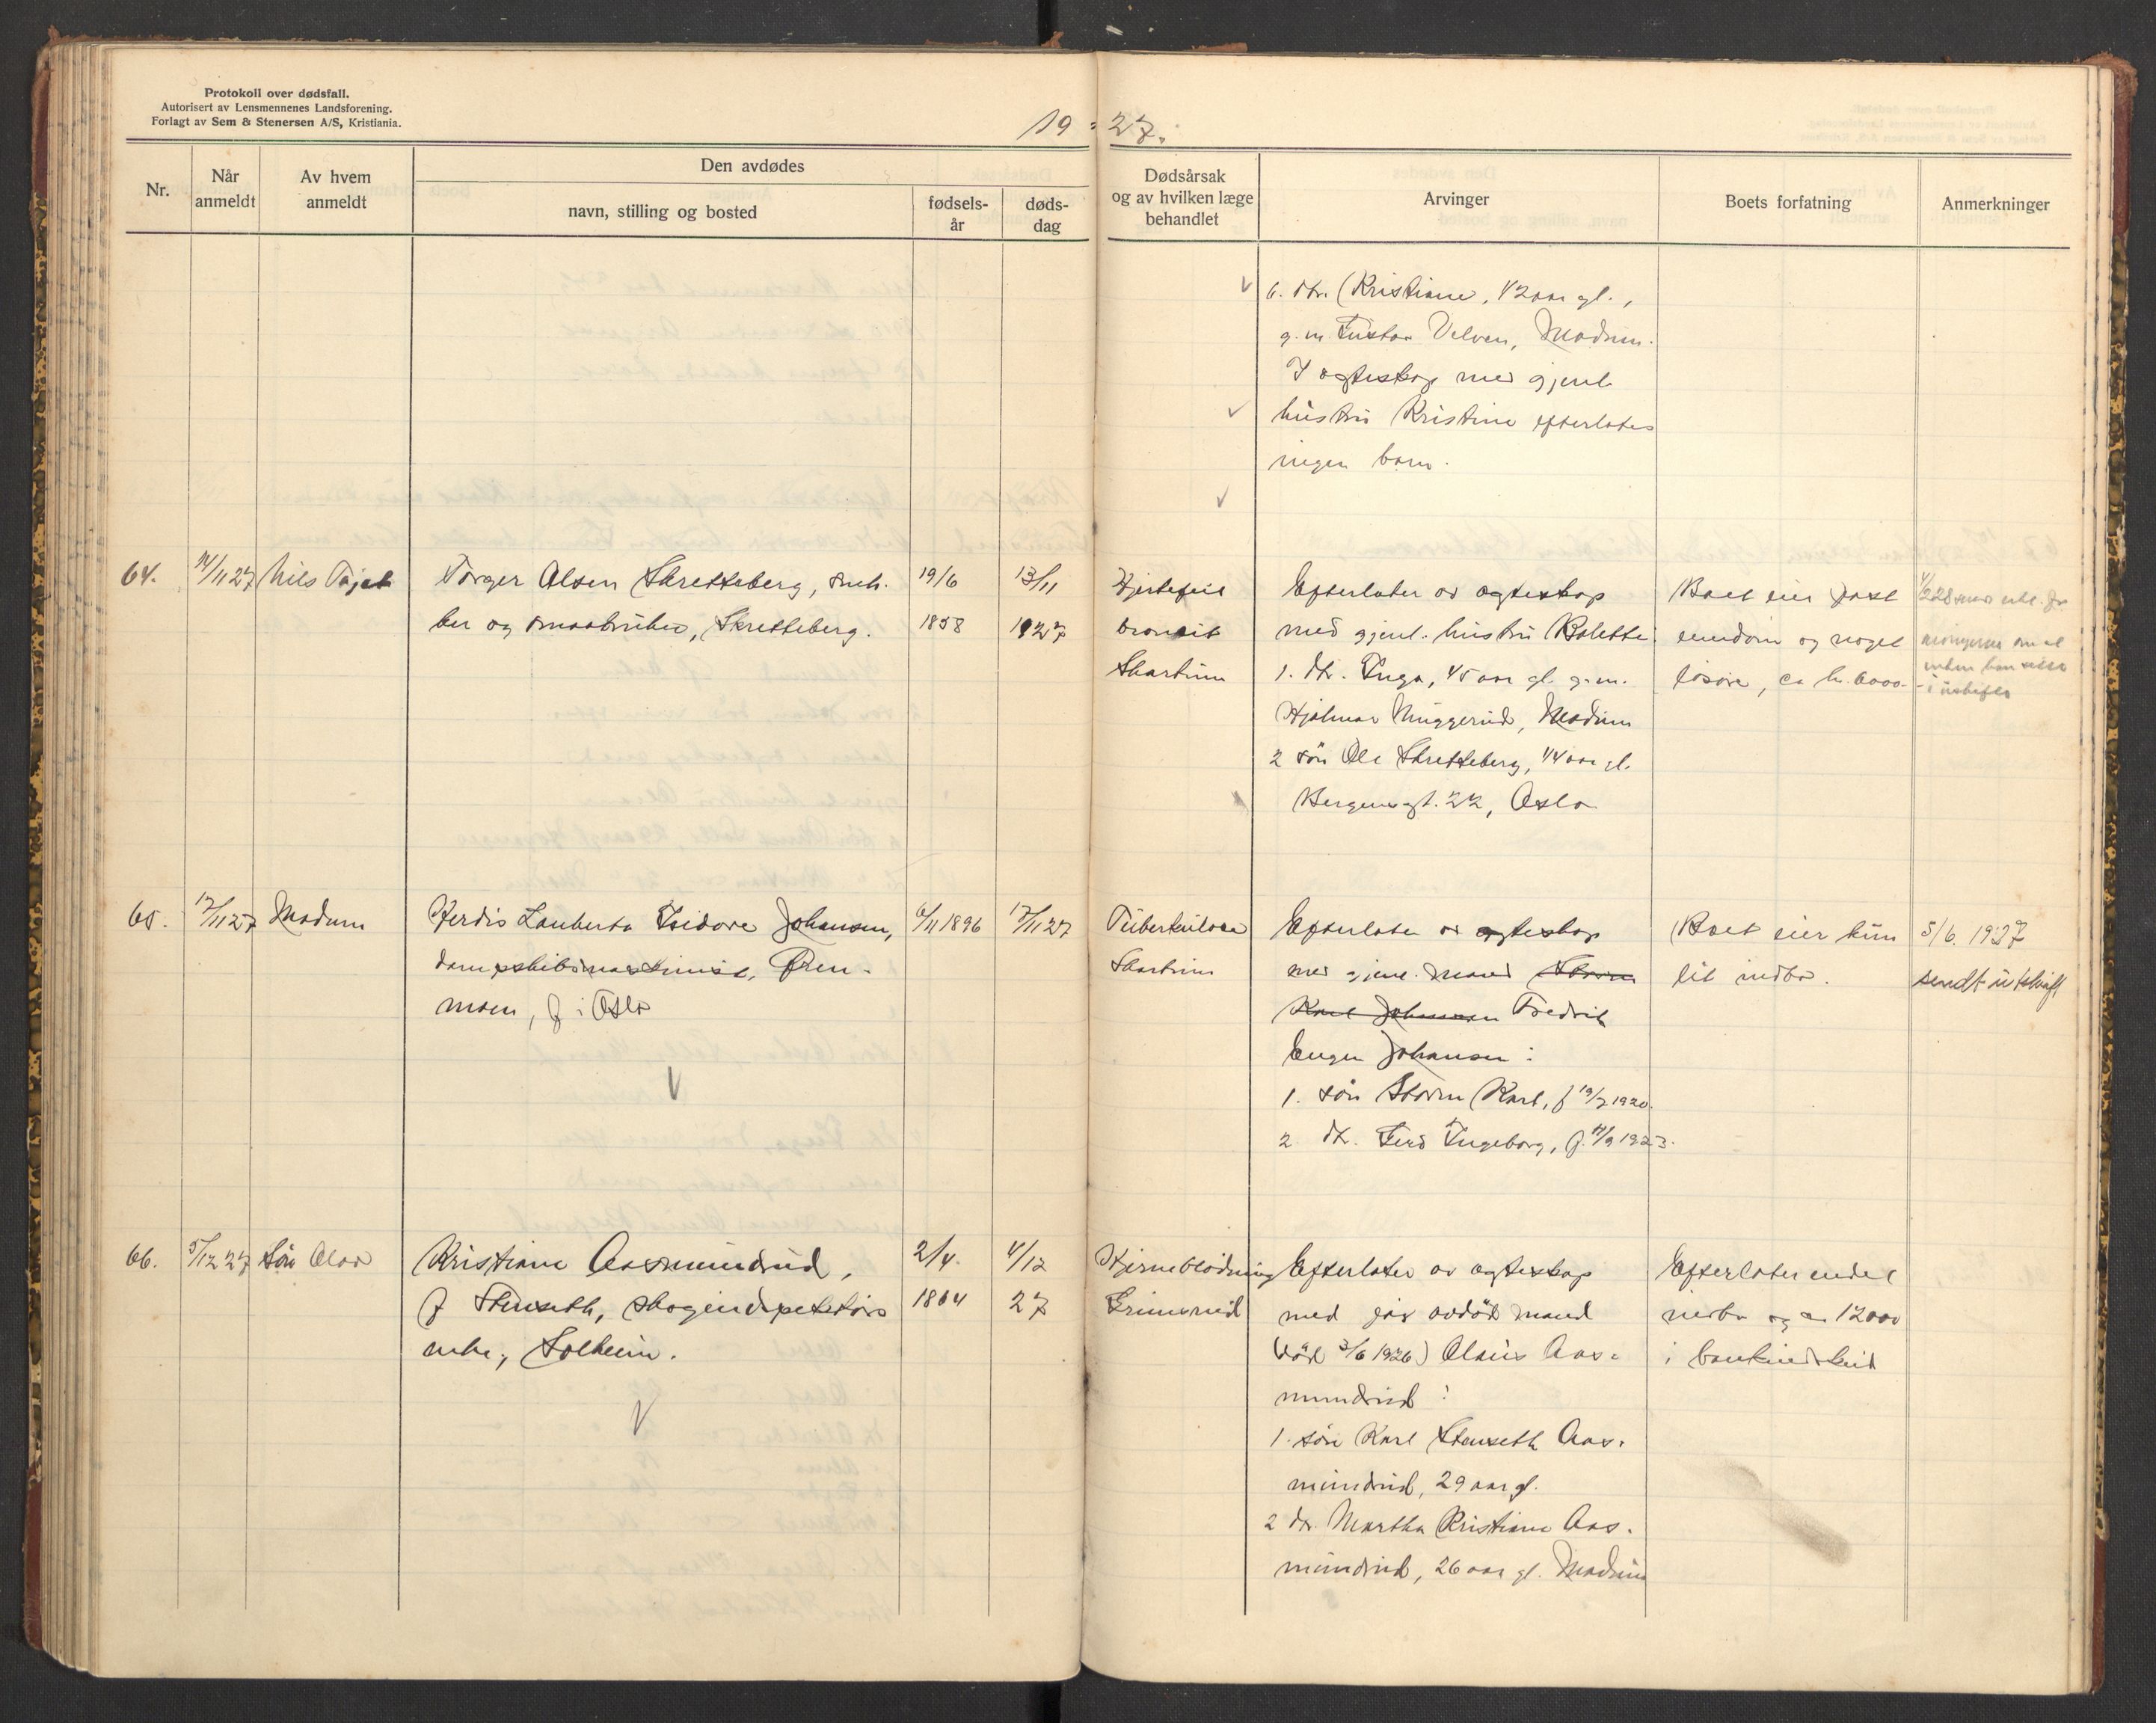 Protokoll over dødsfall.
Autorisert av Lensmennenes Landsforening.
Forlagt av Sem & Stenersen A/S, Kristiania.
19 27.
Nr.
Når anmeldt
Av hvem anmeldt
Den avdødes
navn, stilling og bosted
fødsels-
år
døds-
dag
Dødsårsak
og av hvilken læge
behandlet
Arvinger
Boets forfatning
Anmerkninger
6. dtr. Kristiane, 42 aar gl.,
g.m. Gustav Velven, Modum.
I ægteskap med gjenl.
hustru Kristine efterlates
ingen barn.
64.
14/11 27
Nils Tajet
Torger Olsen Skretteberg, snek-
ker og smaabruker, Skretteberg.
19/6
1858
13/11
1927
Hjertefeil
bronkit
Skartum
Efterlater av ægteskap
med gjenl. hustru Bolette
1. dtr. Inga, 45 aar gl. g.m.
Hjalmar Muggerud, Modum
2 søn Ole Skretteberg, 44 aar gl.
Bergensgt. 22, Oslo
Boet eier fast
eiendom og noget
løsøre, ca kr. 6000.-
65.
17/11 27
Modum
Herdis Lauberta Isidore Johansen,
dampskibsmaskinist, Øren-
moen, f i Oslo
6/11 1896
17/11 27
Tuberkulose
Skartum
Efterlater av ægteskap
med gjenl. mand Storm
Karl Johansen Fredrik
Eugen Johansen:
1. søn Storm Karl, f 19/7 1920.
2. dtr. Gerd Ingeborg, f. 11/9 1923.
Boet eier kun
lit indbo.
5/6. 1927
sendt utskrift
66.
5/12 27
Søn Olav
Kristiane Aasmundrud,
f Stenseth, skoginspektørs
enke, Solheim.
2/4.
1864
4/12
27
Hjerneblødning
Grimsrud
Efterlater av ægteskap
med før avdød mand
(død 3/6 1926) Olaus Aas-
mundrud:
1. søn Karl Stenseth Aas-
mundrud, 29 aar gl.
2 dtr. Martha Kristiane Aas-
mundrud, 26 aar gl. Modum
Efterlater endel
indbo og ca 12000
i bankindskud